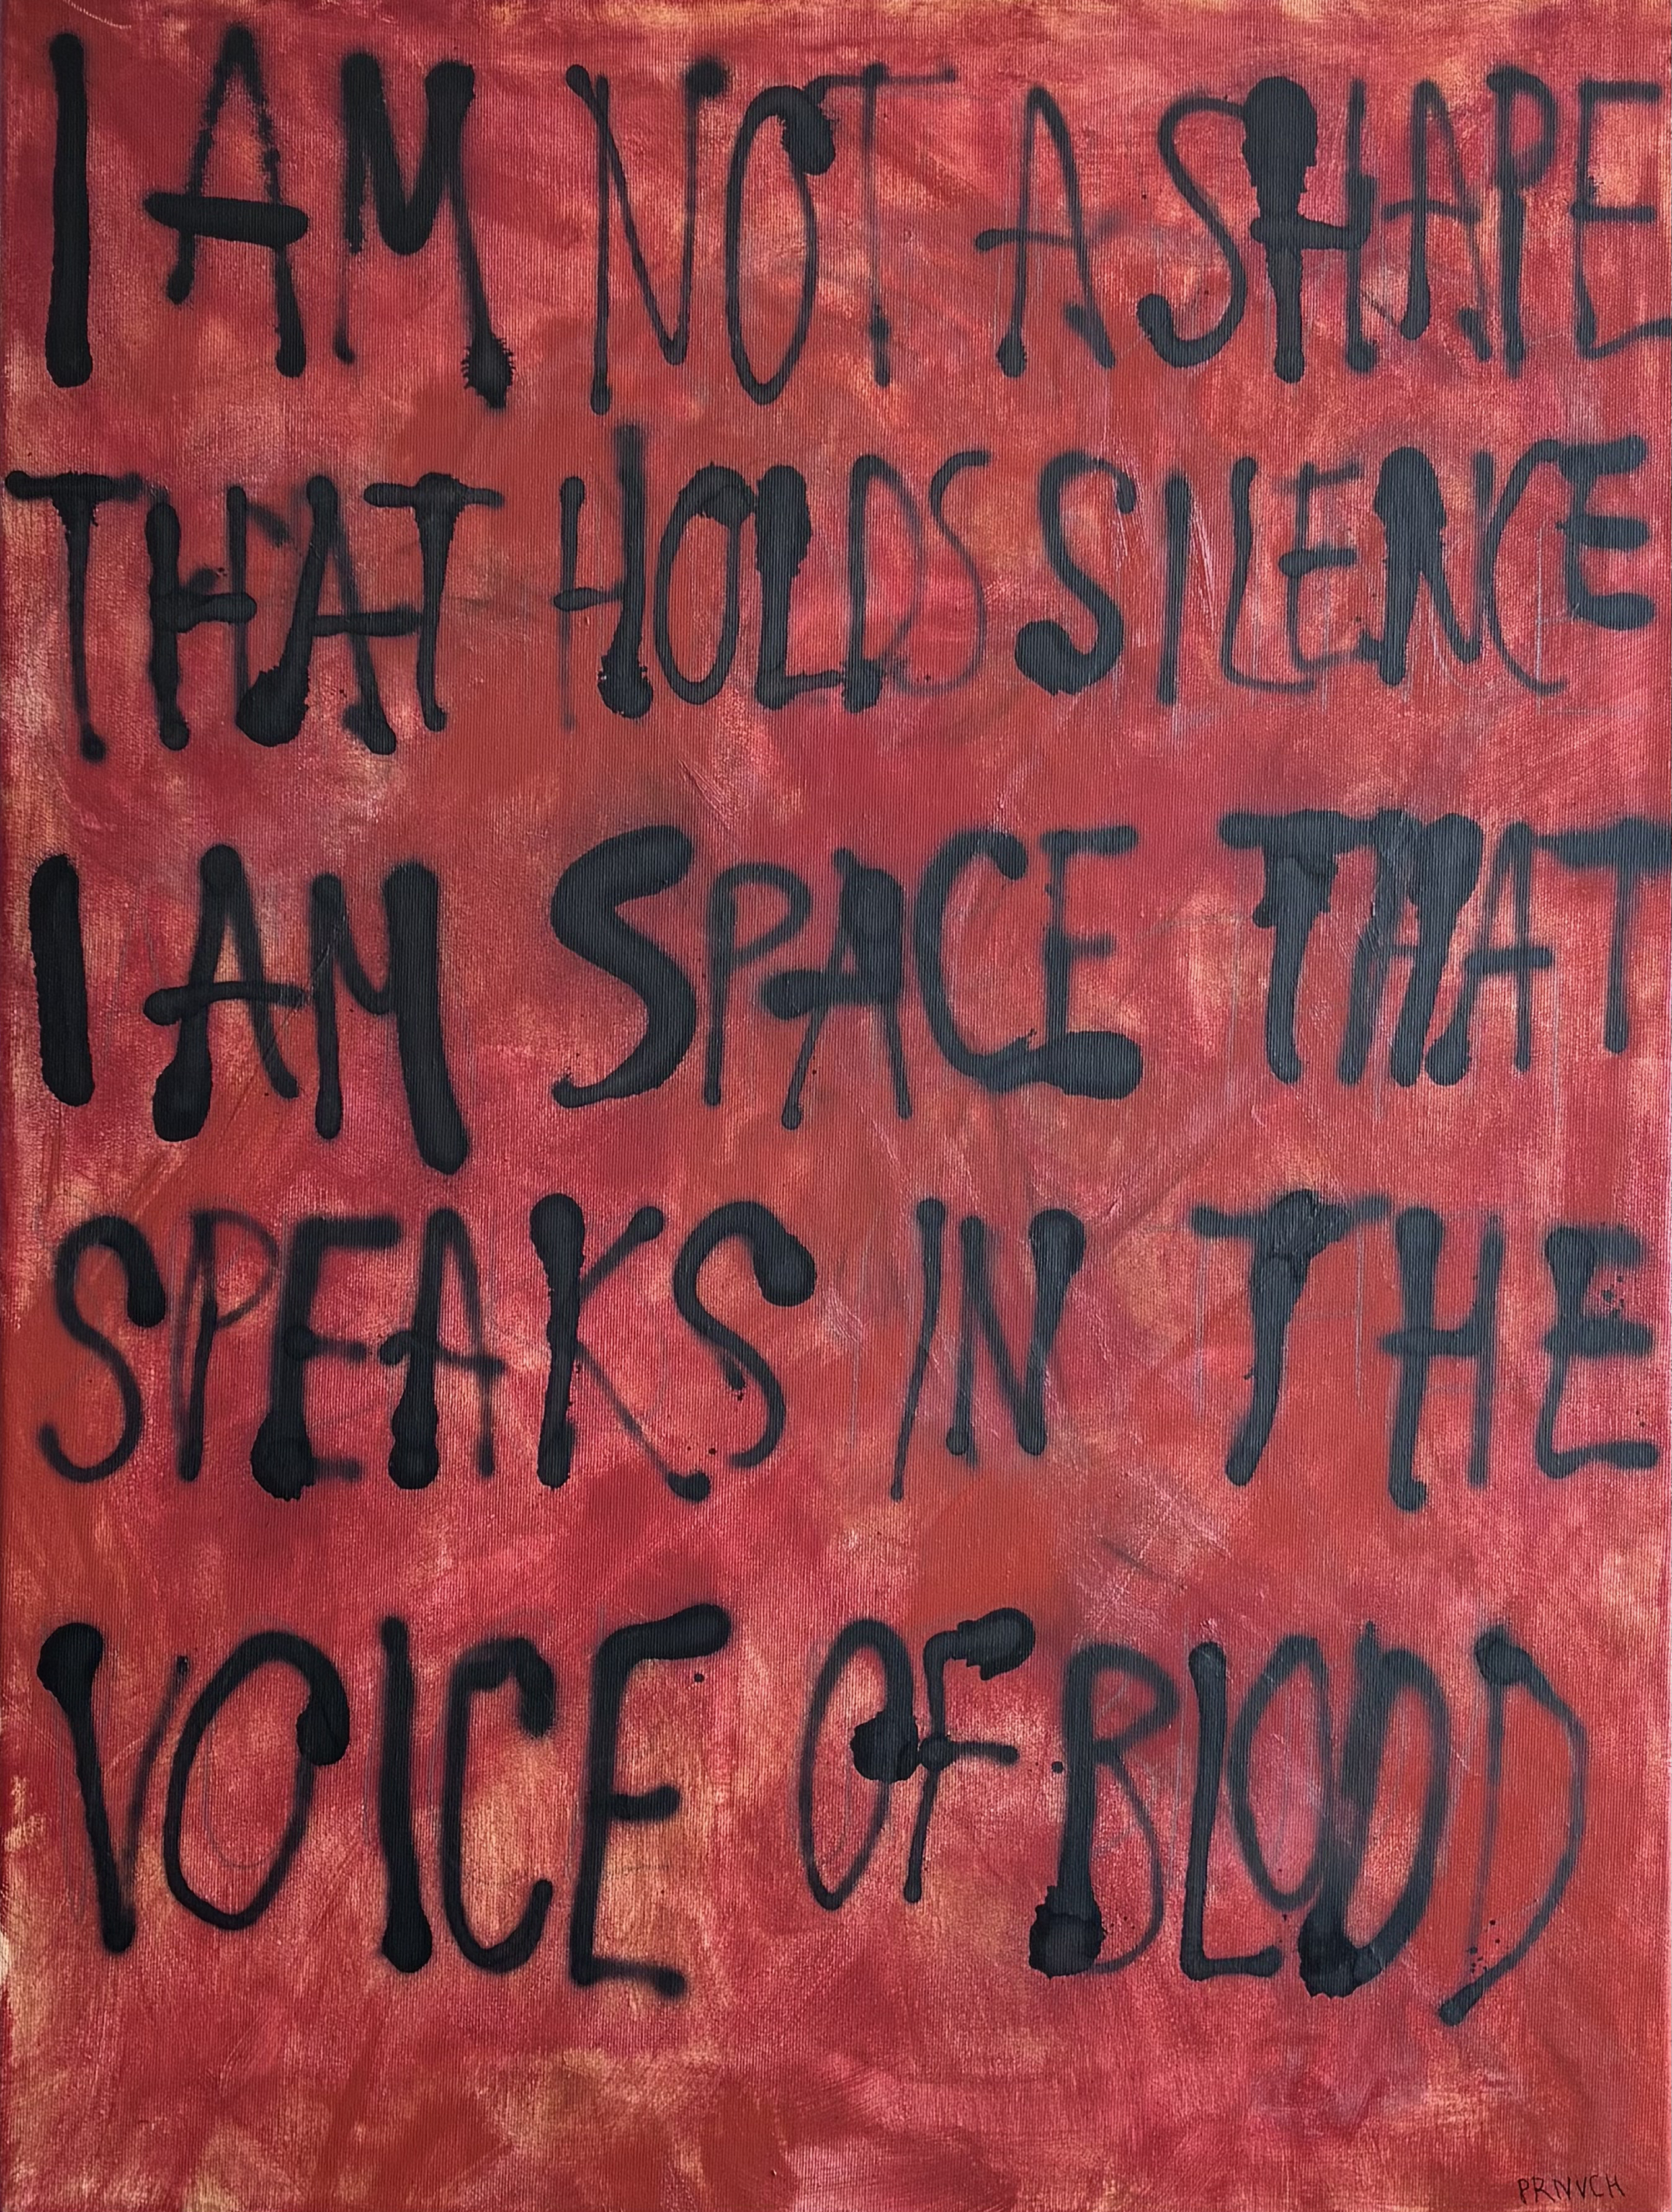 I AM NOT A SHAPE
THAT HOLDS SILENCE
I AM SPACE THAT
SPEAKS IN THE
VOICE OF BLOOD
PRNVCH